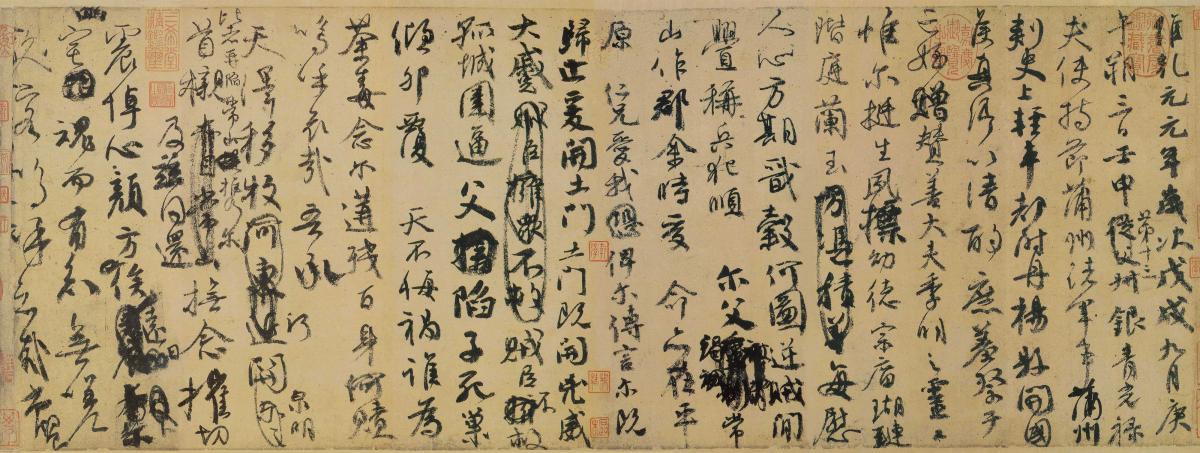 維乾元元年歲次戊戌九月庚
午朔三日壬申第十三叔銀青光祿
夫使持節蒲州諸軍事蒲州
刺史上輕車都尉丹楊縣開國
侯真卿以清酌庶羞祭于
亡姪贈贊善大夫季明之靈曰
惟爾挺生夙標幼德宗廟瑚璉
階庭蘭玉每慰
人心方期戩穀何圖逆賊間
釁稱兵犯順爾父竭誠常
山作郡余時受命亦在平
原仁兄愛我俾爾傳言爾既
歸止爰開土門土門既開兇威
大蹙賊臣不救
孤城圍逼父陷子死巢
傾卵覆天不悔禍誰為
荼毒念爾遘殘百身何贖
嗚呼哀哉吾承
天澤移牧河關泉明
比者再陷常山攜爾
首櫬及茲同還撫念摧切
震悼心顏方俟遠日
卜爾幽宅魂而有知無嗟
久客嗚呼哀哉尚饗